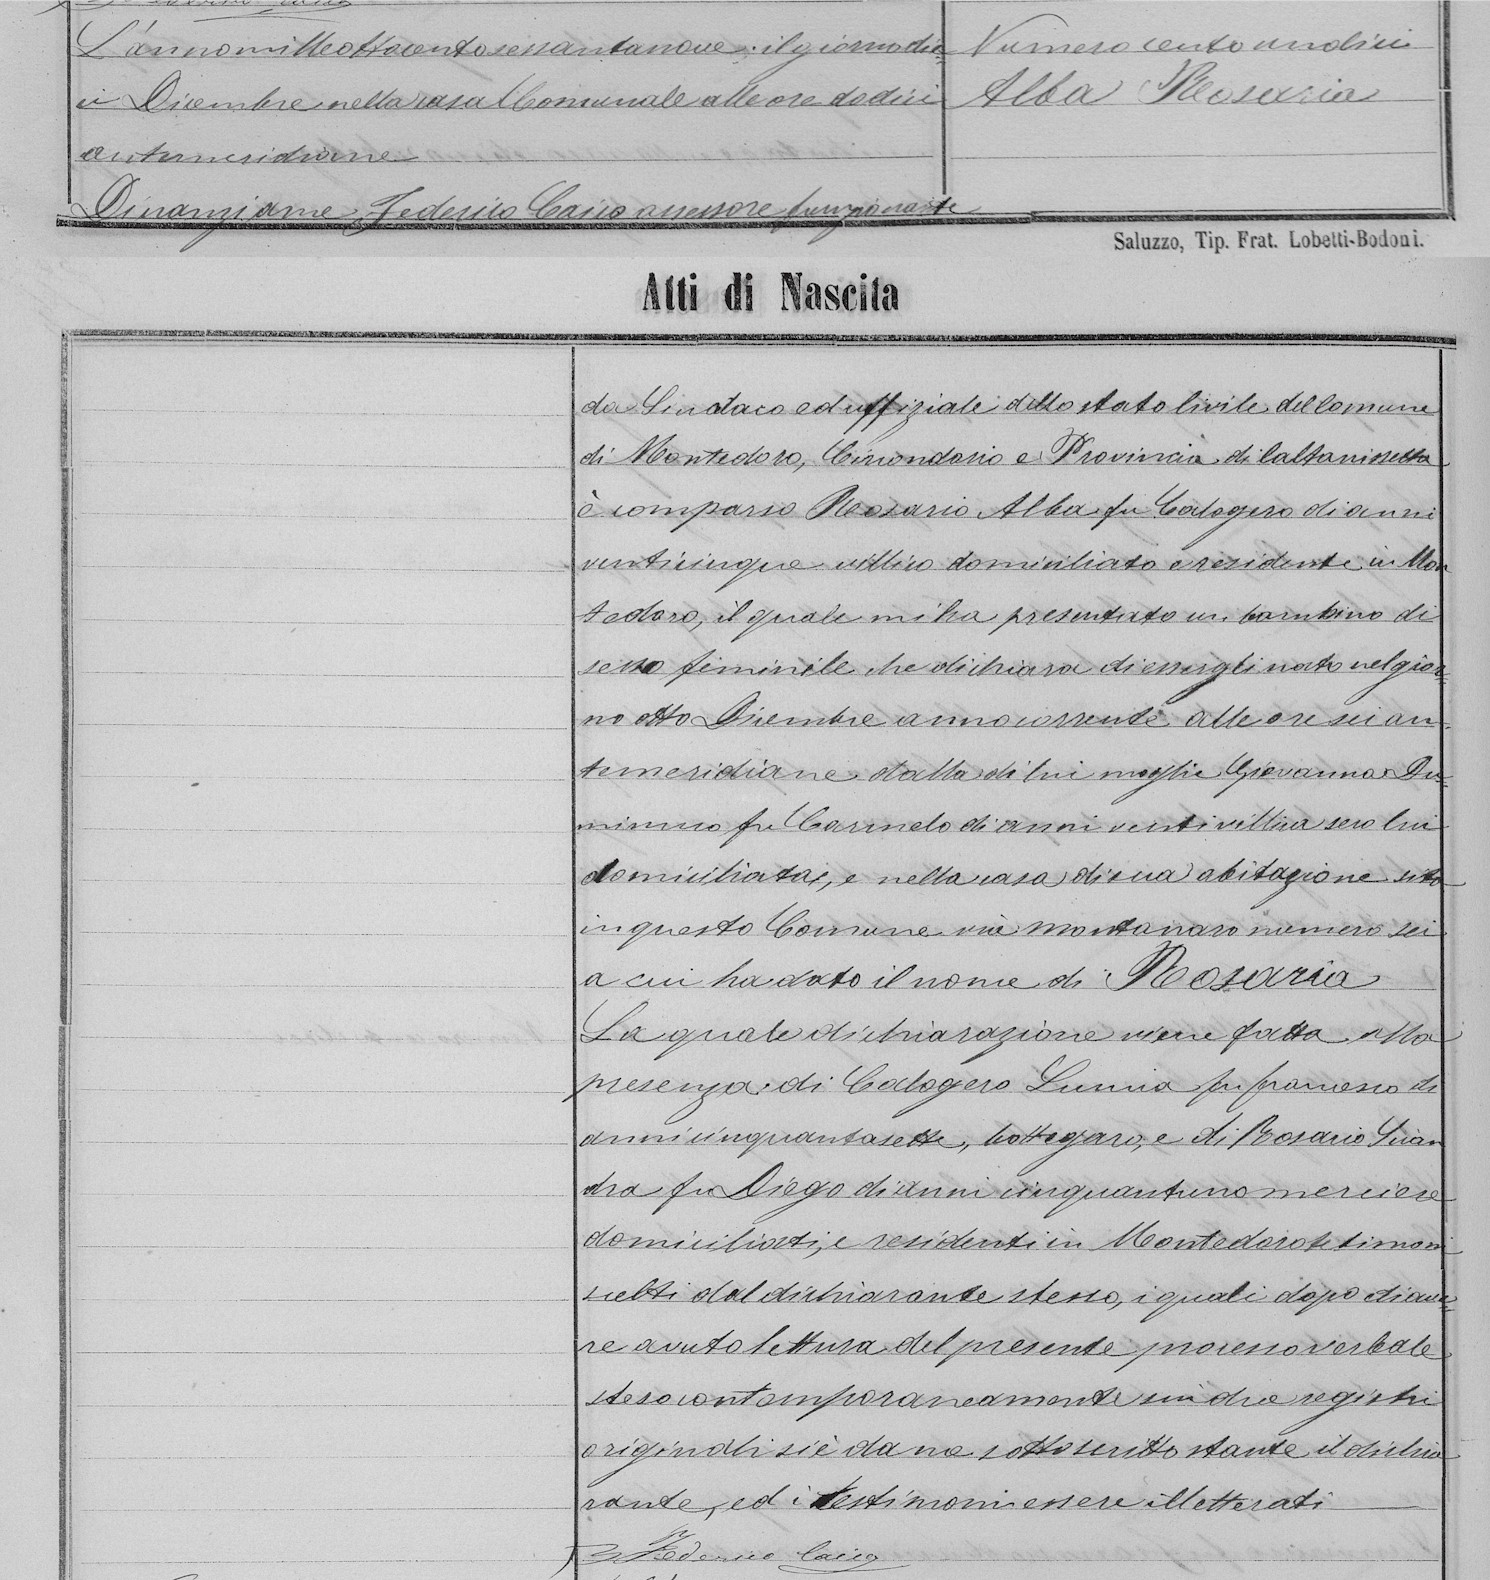 L'anno mille ottocento sessantanove, il giorno die=
ci Dicembre nella casa Comunale alle ore dodici
antimeridiane
Dinanzi a me Federico Caico assessore funzionante
Numero cento undici
Alba Rosaria
Saluzzo, Tip. Frat. Lobetti-Bodoni.
Atti di Nascita
da Sindaco ed uffiziale dello stato civile del Comune
di Montedoro, Circondario e Provincia di Caltanissetta
è comparso Rosario Alba fu Calogero di anni
venticinque villico domiciliato e residente in Mon
tedoro, il quale mi ha presentato un bambino di
sesso feminile che dichiara di essergli nato nel gior=
no otto Dicembre anno corrente alle ore sei an=
temeridiane dalla di lui moglie Giovanna Du=
minuco fu Carmelo di anni venti villica seco lui
domiciliata, e nella casa di sua abitazione sita
in questo Comune via Montanaro numero sei
a cui ha dato il nome di Rosaria
La quale dichiarazione viene fatta alla
presenza di Calogero Lumia fu Francesco di
anni cinquantasette, bottegaro, e di Rosario
dra fu Diego di anni cinquantuno merciere
domiciliati, e residenti in Montedoro testimoni
scelti dal dichiarante stesso, i quali dopo di ave=
re avuto lettura del presente processo verbale
steso contemporaneamente sui due registri
originali si è da me sottoscritto stante il dichia
rante, ed i testimoni essere illetterati
Federico Caico